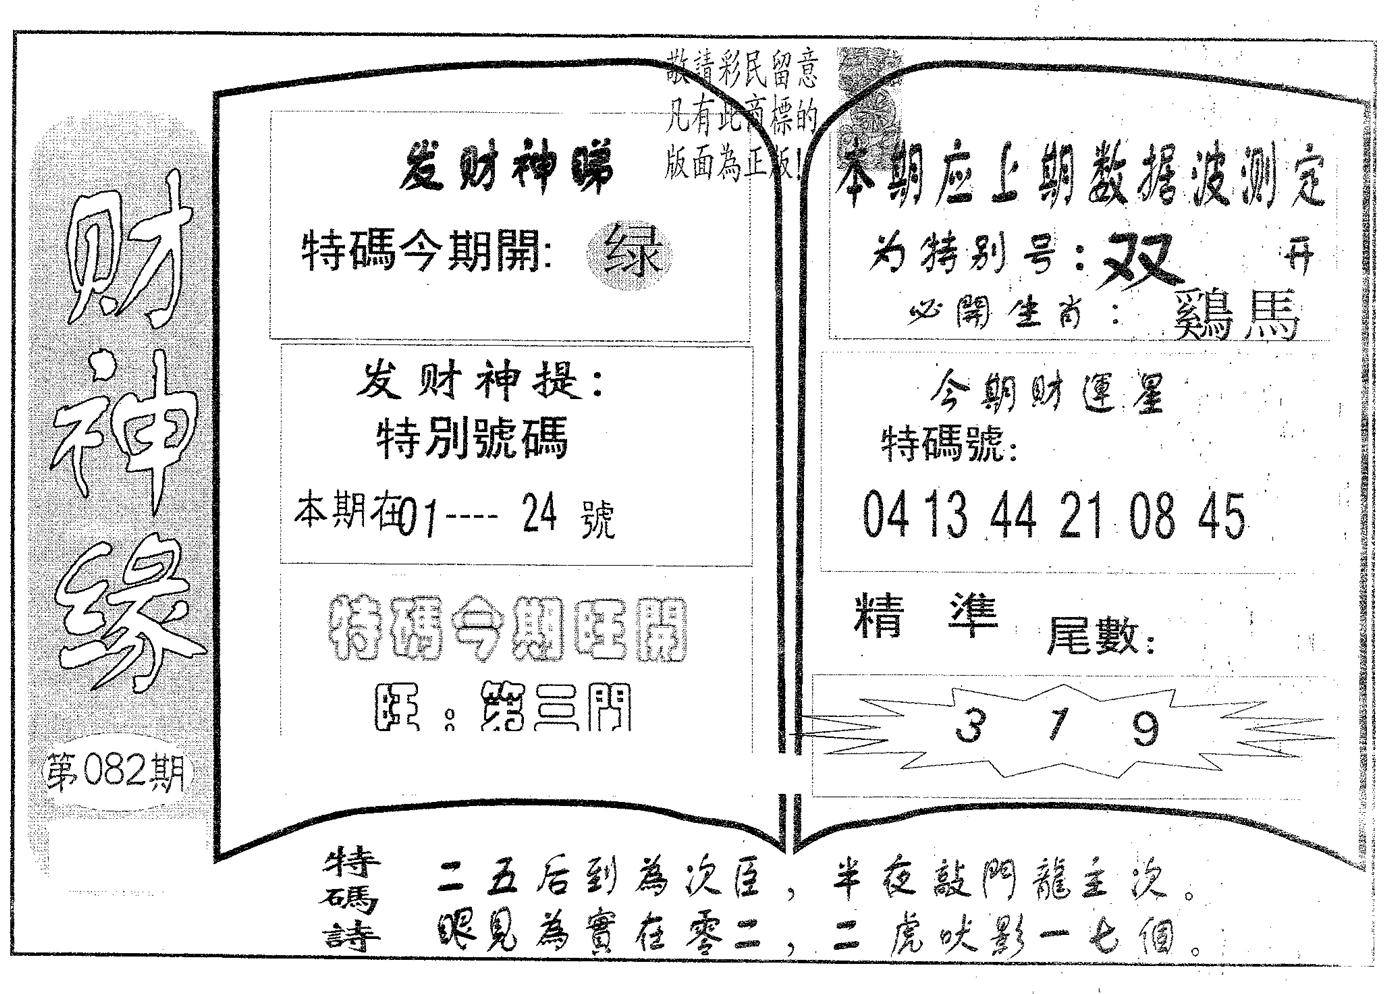 财神缘
第082期
敬請彩民留意
凡有此商標的
版面為正版!
发财神睇
特碼今期開: 绿
发财神提:
特別號碼
本期在01---- 24 號
特碼今期旺開
旺:第三門
本期应上期数据波测定
为特别号:双 开
必開生肖: 鷄馬
今期财運星
特碼號:
04 13 44 21 08 45
精準 尾數:
3 1 9
特碼詩
二五后到為次臣,半夜敲門龍主次。
眼見為實在零二,二虎吠影一七個。